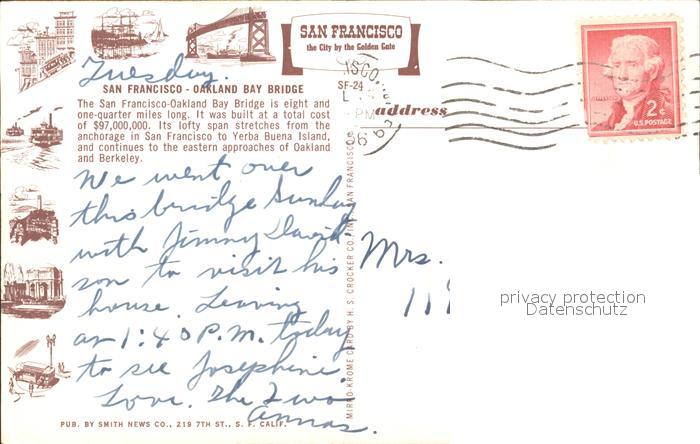 SAN FRANCISCO
the City by the Golden Gate
Tuesday.
SAN FRANCISCO - OAKLAND BAY BRIDGE
The San Francisco-Oakland Bay Bridge is eight and
one-quarter miles long. It was built at a total cost
of $97,000,000. Its lofty span stretches from the
anchorage in San Francisco to Yerba Buena Island,
and continues to the eastern approaches of Oakland
and Berkeley.
We went over
this bridge Sunday
with Jimmy David-
son to visit his
house. Leaving
at 1:40 P.M. today
to see Josephine
Love. The Two
Annas.
PUB. BY SMITH NEWS CO., 219 7TH ST., S. F. CALIF.
MIRRO-KROME CARD BY H. S. CROCKER CO. SAN FRANCISCO
SF-24
PM
address
2¢
U.S. POSTAGE
Mrs.
privacy protection
Datenschutz